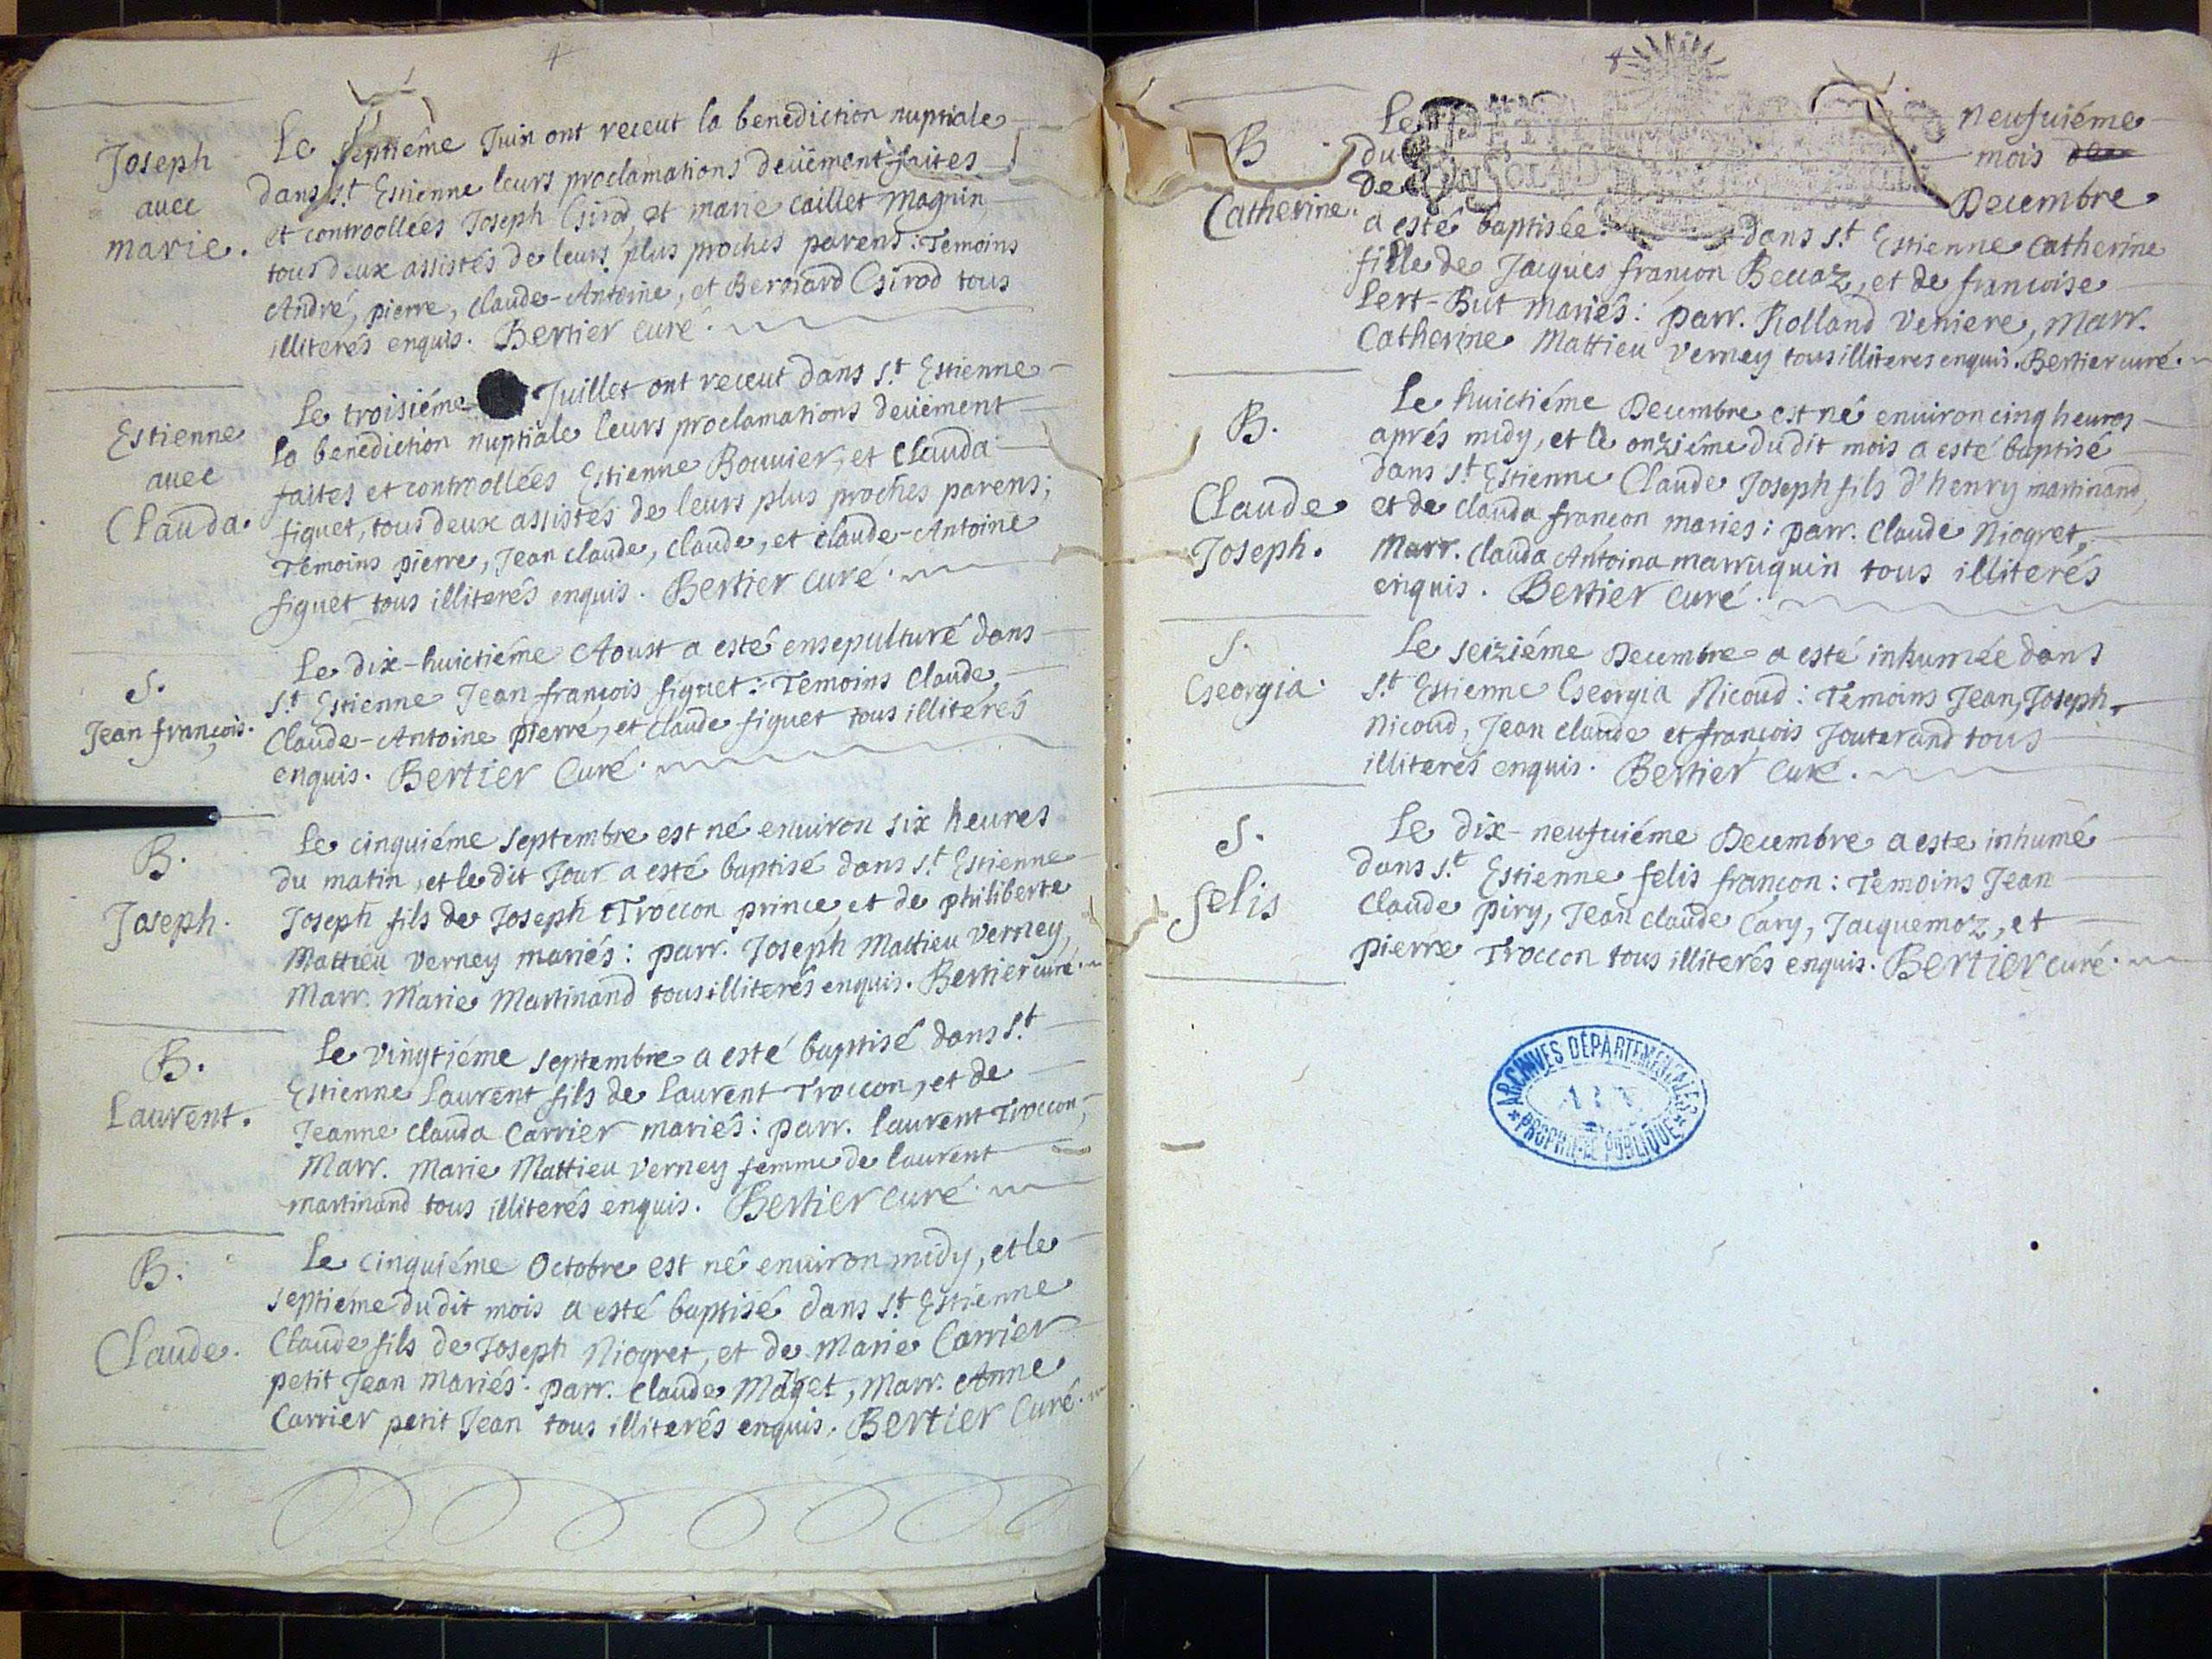 4
Joseph
avec
marie.
Le septiéme Juin ont receut la benediction nuptiale
dans s.t Estienne leurs proclamations deüement faites
et controollées Joseph Girod, et marie caillet Magnin
tous deux assistés de leurs plus proches parens: Temoins
André, pierre, claude-Antoine, et Bernard Girod tous
illiterés enquis. Bertier curé.
Estienne
avec
Clauda.
Le troisiéme Juillet ont receut dans s.t Estienne
la benediction nuptiale leurs proclamations deüement
faites et controollées Estienne Bouvier, et Clauda
figuet, tous deux assistés de leurs plus proches parens;
Temoins pierre, Jean claude, claude, et claude-Antoine
figuet tous illiterés enquis. Bertier curé.
S.
Jean françois.
Le dix-huictiéme Aoust a esté ensepulturé dans
s.t Estienne Jean françois figuet: Temoins Claude,
Claude-Antoine pierre, et claude figuet tous illiterés
enquis. Bertier Curé.
B.
Joseph.
Le cinquiéme septembre est né environ six heures
du matin, et le dit Jour a esté baptisé dans s.t Estienne
Joseph fils de Joseph Troccon prince, et de philiberte
Mattieu verney mariés: parr. Joseph Mattieu verney,
Marr. Marie Martinand tous illiterés enquis. Bertier curé.
B.
Laurent.
Le vingtiéme septembre a esté baptisé dans s.t
Estienne Laurent fils de Laurent Troccon, et de
Jeanne clauda Carrier mariés: parr. laurent Troccon,
Marr. Marie Mattieu verney femme de laurent
martinand tous illiterés enquis. Bertier curé.
B.
Claude.
Le cinquiéme Octobre est né environ midy, et le
septiéme du dit mois a esté baptisé dans s.t Estienne
Claude fils de Joseph Niogret, et de Marie Carrier
petit Jean mariés: parr. claude Maget, Marr. Anne
Carrier petit Jean tous illiterés enquis. Bertier Curé.
B
Catherine.
Le neufuiéme
du mois
de Decembre
a esté baptisée dans s.t Estienne Catherine
fille de Jacques françon Beccaz, et de francoise
Lert-But mariés: parr. Rolland veniere, Marr.
Catherine Mattieu verney tous illiteres enquis. Bertier curé.
B.
Claude
Joseph.
Le huictiéme Decembre est né environ cinq heures
aprés midy, et le onziéme du dit mois a esté baptisé
dans s.t Estienne Claude Joseph fils d'henry martinand,
et de clauda françon mariés: parr. Claude Niogret,
Marr. clauda Antoina marruquin tous illiterés
enquis. Bertier curé.
S.
Georgia.
Le seiziéme Decembre a esté inhumée dans
s.t Estienne Georgia Nicoud: Temoins Jean, Joseph
Nicoud, Jean claude et françois Jouterand tous
illiterés enquis. Bertier curé.
S.
felis
Le dix-neufuiéme Decembre a este inhumé
dans s.t Estienne felis françon: Temoins Jean
Claude piry, Jean claude Cary, Jacquemoz, et
pierre Troccon tous illiterés enquis. Bertier curé.
ARCHIVES DÉPARTEMENTALES
* PROPRIÉTÉ PUBLIQUE *